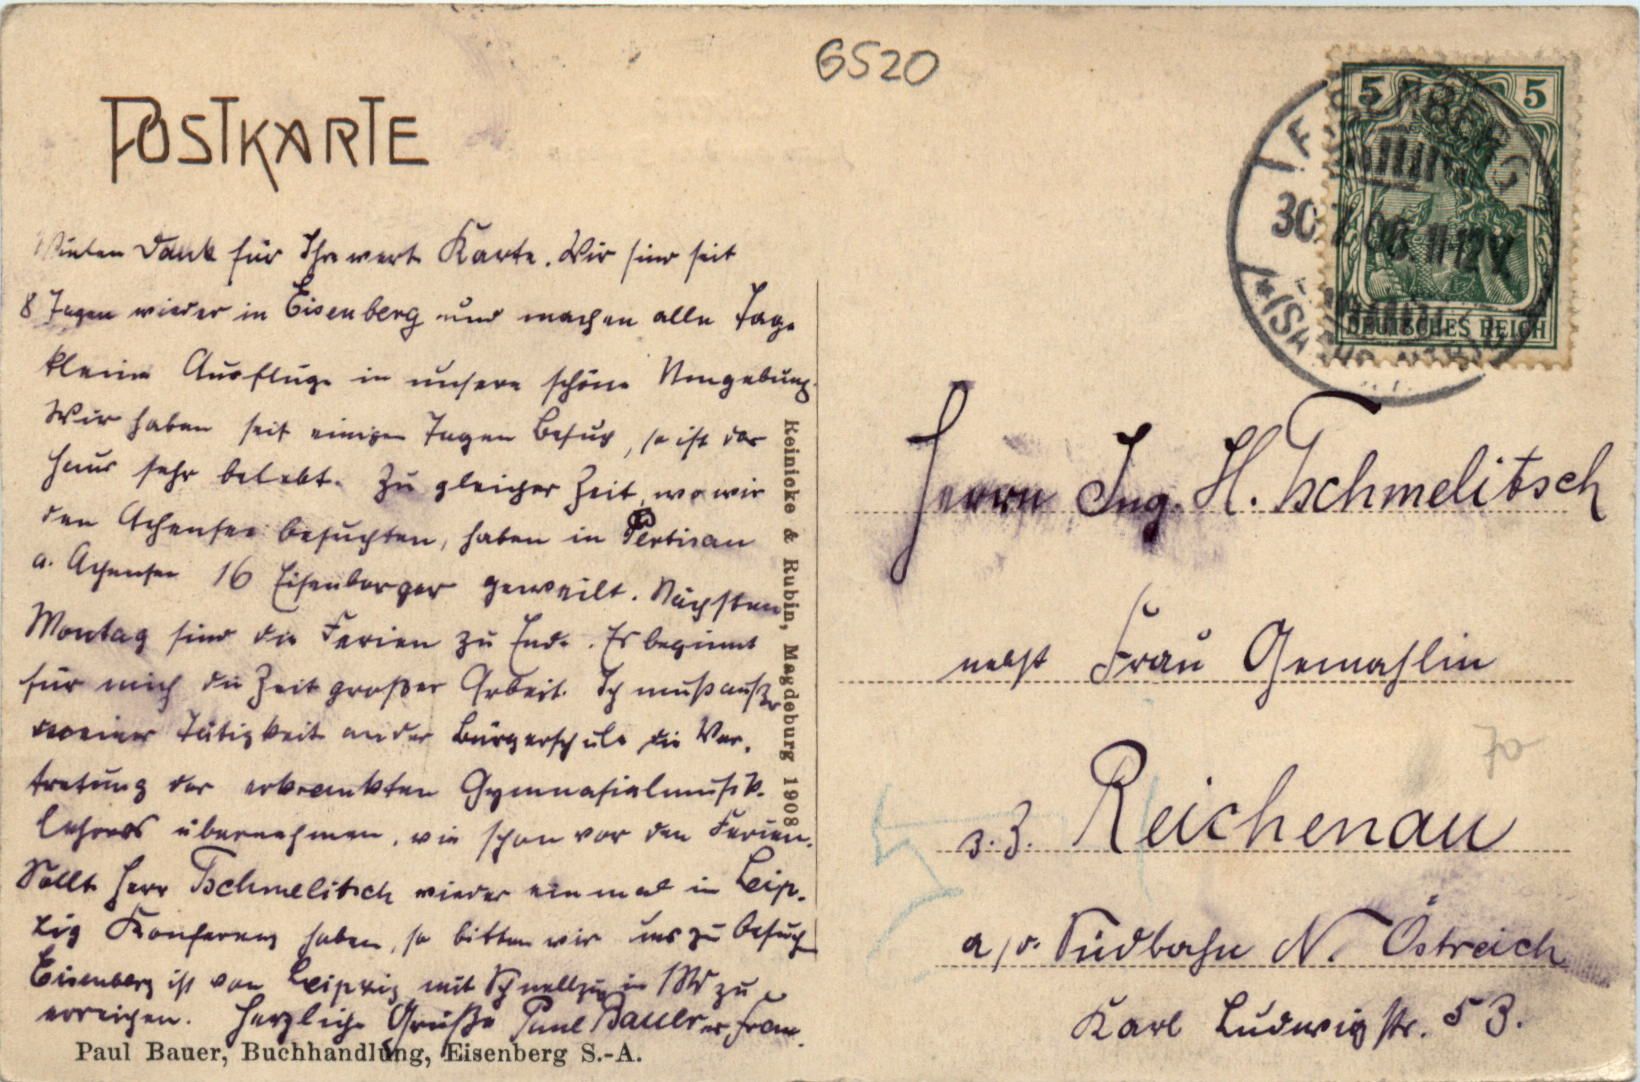 6520
POSTKARTE
5 5
EISENBERG
30. 7. 08. 11-12 V
DEUTSCHES REICH
Vielen Dank für Ihre werte Karte. Wir sind seit
8 Tagen wieder in Eisenberg und machen alle Tage
kleine Ausflüge in unsere schöne Umgebung.
Wir haben seit einigen Tagen Besuch, so ist das
Haus sehr belebt. Zu gleicher Zeit, wo wir
den Achensee besuchten, haben in Pertisau
a. Achensee 16 Eisenberger geweilt. Nächsten
Montag sind die Ferien zu Ende. Es beginnt
für mich die Zeit großer Arbeit. Ich muß außer
meiner Tätigkeit an der Bürgerschule die Ver-
tretung des erkrankten Gymnasialmusik-
lehrers übernehmen, wie schon vor den Ferien.
Sollte Herr Tschmelitsch wieder einmal in Leip-
zig Konferenz haben, so bitten wir uns zu besuchen
Eisenberg ist von Leipzig mit Schnellzug in 1 St zu
erreichen. Herzliche Grüße Paul Bauer u. Frau.
Paul Bauer, Buchhandlung, Eisenberg S.-A.
Reinicke & Rubin, Magdeburg 1908
Herrn Ing. H. Tschmelitsch
nebst Frau Gemahlin
70
z. Z. Reichenau
a/d. Südbahn N. Östreich
Karl Ludwigstr. 53.